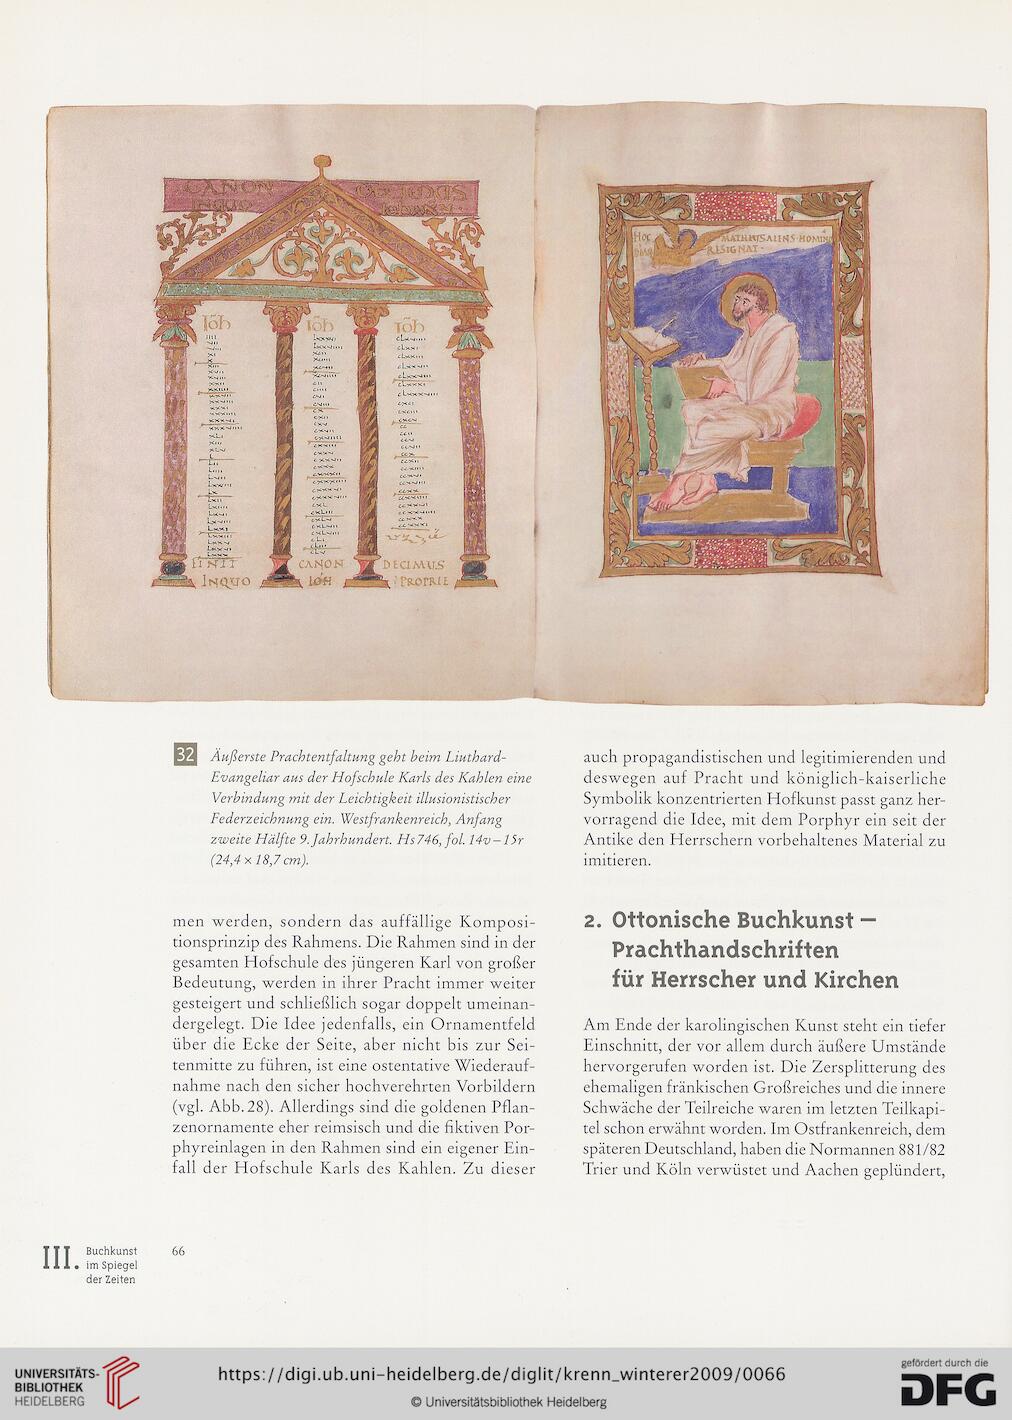 CANON
INQUO
HOC
MATHEUS ALENS HOMINE
RESIGNAT
Ioh Ioh Ioh
FINIT CANON DECIMUS
INQUO IOH PROPRIE
32 Äußerste Prachtentfaltung geht beim Liuthard-
Evangeliar aus der Hofschule Karls des Kahlen eine
Verbindung mit der Leichtigkeit illusionistischer
Federzeichnung ein. Westfrankenreich, Anfang
zweite Hälfte 9. Jahrhundert. Hs 746, fol. 14v – 15r
(24,4 × 18,7 cm).
men werden, sondern das auffällige Komposi-
tionsprinzip des Rahmens. Die Rahmen sind in der
gesamten Hofschule des jüngeren Karl von großer
Bedeutung, werden in ihrer Pracht immer weiter
gesteigert und schließlich sogar doppelt umeinan-
dergelegt. Die Idee jedenfalls, ein Ornamentfeld
über die Ecke der Seite, aber nicht bis zur Sei-
tenmitte zu führen, ist eine ostentative Wiederauf-
nahme nach den sicher hochverehrten Vorbildern
(vgl. Abb. 28). Allerdings sind die goldenen Pflan-
zenornamente eher reimsisch und die fiktiven Por-
phyreinlagen in den Rahmen sind ein eigener Ein-
fall der Hofschule Karls des Kahlen. Zu dieser
auch propagandistischen und legitimierenden und
deswegen auf Pracht und königlich-kaiserliche
Symbolik konzentrierten Hofkunst passt ganz her-
vorragend die Idee, mit dem Porphyr ein seit der
Antike den Herrschern vorbehaltenes Material zu
imitieren.
2. Ottonische Buchkunst –
Prachthandschriften
für Herrscher und Kirchen
Am Ende der karolingischen Kunst steht ein tiefer
Einschnitt, der vor allem durch äußere Umstände
hervorgerufen worden ist. Die Zersplitterung des
ehemaligen fränkischen Großreiches und die innere
Schwäche der Teilreiche waren im letzten Teilkapi-
tel schon erwähnt worden. Im Ostfrankenreich, dem
späteren Deutschland, haben die Normannen 881/82
Trier und Köln verwüstet und Aachen geplündert,
III. Buchkunst
im Spiegel
der Zeiten
66
UNIVERSITÄTS-
BIBLIOTHEK
HEIDELBERG
https://digi.ub.uni-heidelberg.de/diglit/krenn_winterer2009/0066
© Universitätsbibliothek Heidelberg
gefördert durch die
DFG